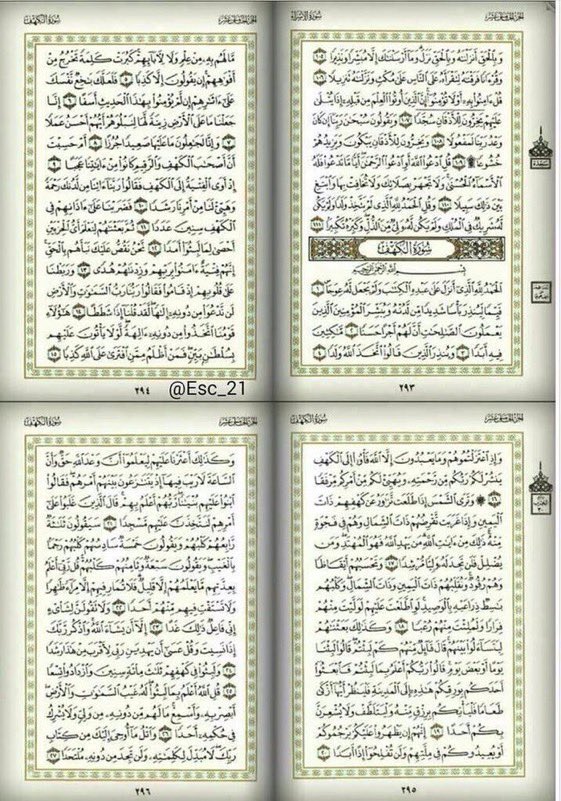 الجزء الخامس عشر
سورة الإسراء
وبالحق أنزلنه وبالحق نزل وما أرسلنك إلا مبشرا ونذيرا ١٠٥
وقرءانا فرقنه لتقرأه على الناس على مكث ونزلنه تنزيلا ١٠٦
قل ءامنوا به أو لا تؤمنوا إن الذين أوتوا العلم من قبله إذا يتلى
عليهم يخرون للأذقان سجدا ١٠٧ ويقولون سبحن ربنا إن كان
وعد ربنا لمفعولا ١٠٨ ويخرون للأذقان يبكون ويزيدهم
خشوعا ۩ ١٠٩ قل ادعوا الله أو ادعوا الرحمن أيا ما تدعوا فله
الأسماء الحسنى ولا تجهر بصلاتك ولا تخافت بها وابتغ
بين ذلك سبيلا ١١٠ وقل الحمد لله الذي لم يتخذ ولدا ولم يكن
له شريك في الملك ولم يكن له ولي من الذل وكبره تكبيرا ١١١
سورة الكهف
بسم الله الرحمن الرحيم
الحمد لله الذي أنزل على عبده الكتب ولم يجعل له عوجا ١
قيما لينذر بأسا شديدا من لدنه ويبشر المؤمنين الذين
يعملون الصلحت أن لهم أجرا حسنا ٢ مكثين
فيه أبدا ٣ وينذر الذين قالوا اتخذ الله ولدا ٤
٢٩٣
الجزء الخامس عشر
سورة الكهف
ما لهم به من علم ولا لأبائهم كبرت كلمة تخرج من
أفوههم إن يقولون إلا كذبا ٥ فلعلك بخع نفسك
على ءاثرهم إن لم يؤمنوا بهذا الحديث أسفا ٦ إنا
جعلنا ما على الأرض زينة لها لنبلوهم أيهم أحسن عملا
٧ وإنا لجعلون ما عليها صعيدا جرزا ٨ أم حسبت
أن أصحب الكهف والرقيم كانوا من ءايتنا عجبا ٩
إذ أوى الفتية إلى الكهف فقالوا ربنا ءاتنا من لدنك رحمة
وهيئ لنا من أمرنا رشدا ١٠ فضربنا على ءاذانهم في
الكهف سنين عددا ١١ ثم بعثنهم لنعلم أي الحزبين
أحصى لما لبثوا أمدا ١٢ نحن نقص عليك نبأهم بالحق
إنهم فتية ءامنوا بربهم وزدنهم هدى ١٣ وربطنا
على قلوبهم إذ قاموا فقالوا ربنا رب السموت والأرض
لن ندعوا من دونه إلها لقد قلنا إذا شططا ١٤ هؤلاء
قومنا اتخذوا من دونه ءالهة لولا يأتون عليهم
بسلطن بين فمن أظلم ممن افترى على الله كذبا ١٥
٢٩٤
@Esc_21
الجزء الخامس عشر
سورة الكهف
وإذ اعتزلتموهم وما يعبدون إلا الله فأوا إلى الكهف
ينشر لكم ربكم من رحمته ويهيئ لكم من أمركم مرفقا
١٦ ۞ وترى الشمس إذا طلعت تزور عن كهفهم ذات
اليمين وإذا غربت تقرضهم ذات الشمال وهم في فجوة
منه ذلك من ءايت الله من يهد الله فهو المهتد ومن
يضلل فلن تجد له وليا مرشدا ١٧ وتحسبهم أيقاظا
وهم رقود ونقلبهم ذات اليمين وذات الشمال وكلبهم
بسط ذراعيه بالوصيد لو اطلعت عليهم لوليت منهم
فرارا ولملئت منهم رعبا ١٨ وكذلك بعثنهم
ليتساءلوا بينهم قال قائل منهم كم لبثتم قالوا لبثنا
يوما أو بعض يوم قالوا ربكم أعلم بما لبثتم فابعثوا
أحدكم بورقكم هذه إلى المدينة فلينظر أيها أزكى
طعاما فليأتكم برزق منه وليتلطف ولا يشعرن
بكم أحدا ١٩ إنهم إن يظهروا عليكم يرجموكم
أو يعيدوكم في ملتهم ولن تفلحوا إذا أبدا ٢٠
٢٩٥
الجزء الخامس عشر
سورة الكهف
وكذلك أعثرنا عليهم ليعلموا أن وعد الله حق وأن
الساعة لا ريب فيها إذ يتنزعون بينهم أمرهم فقالوا
ابنوا عليهم بنينا ربهم أعلم بهم قال الذين غلبوا على
أمرهم لنتخذن عليهم مسجدا ٢١ سيقولون ثلثة
رابعهم كلبهم ويقولون خمسة سادسهم كلبهم رجما
بالغيب ويقولون سبعة وثامنهم كلبهم قل ربي أعلم
بعدتهم ما يعلمهم إلا قليل فلا تمار فيهم إلا مراء ظهرا
ولا تستفت فيهم منهم أحدا ٢٢ ولا تقولن لشاىء
إني فاعل ذلك غدا ٢٣ إلا أن يشاء الله واذكر ربك
إذا نسيت وقل عسى أن يهدين ربي لأقرب من هذا رشدا
٢٤ ولبثوا في كهفهم ثلث مائة سنين وازدادوا تسعا
٢٥ قل الله أعلم بما لبثوا له غيب السموت والأرض
أبصر به وأسمع ما لهم من دونه من ولي ولا يشرك
في حكمه أحدا ٢٦ واتل ما أوحي إليك من كتاب
ربك لا مبدل لكلمته ولن تجد من دونه ملتحدا ٢٧
٢٩٦